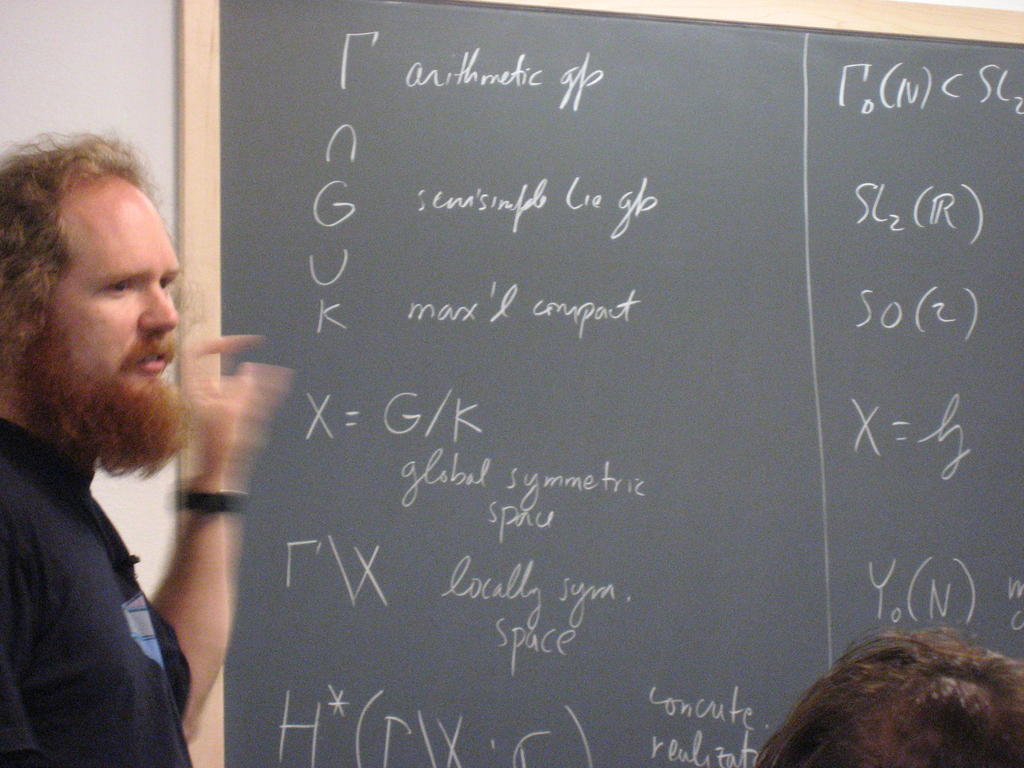 Γ arithmetic gp
∩
G semisimple Lie gp
∪
K max'l compact
X = G/K
global symmetric
space
Γ\X locally sym.
space
H*(Γ\X; ℂ) concrete
realizat
Γ₀(N) ⊂ SL₂
SL₂(ℝ)
SO(2)
X = 𝔥
Y₀(N)